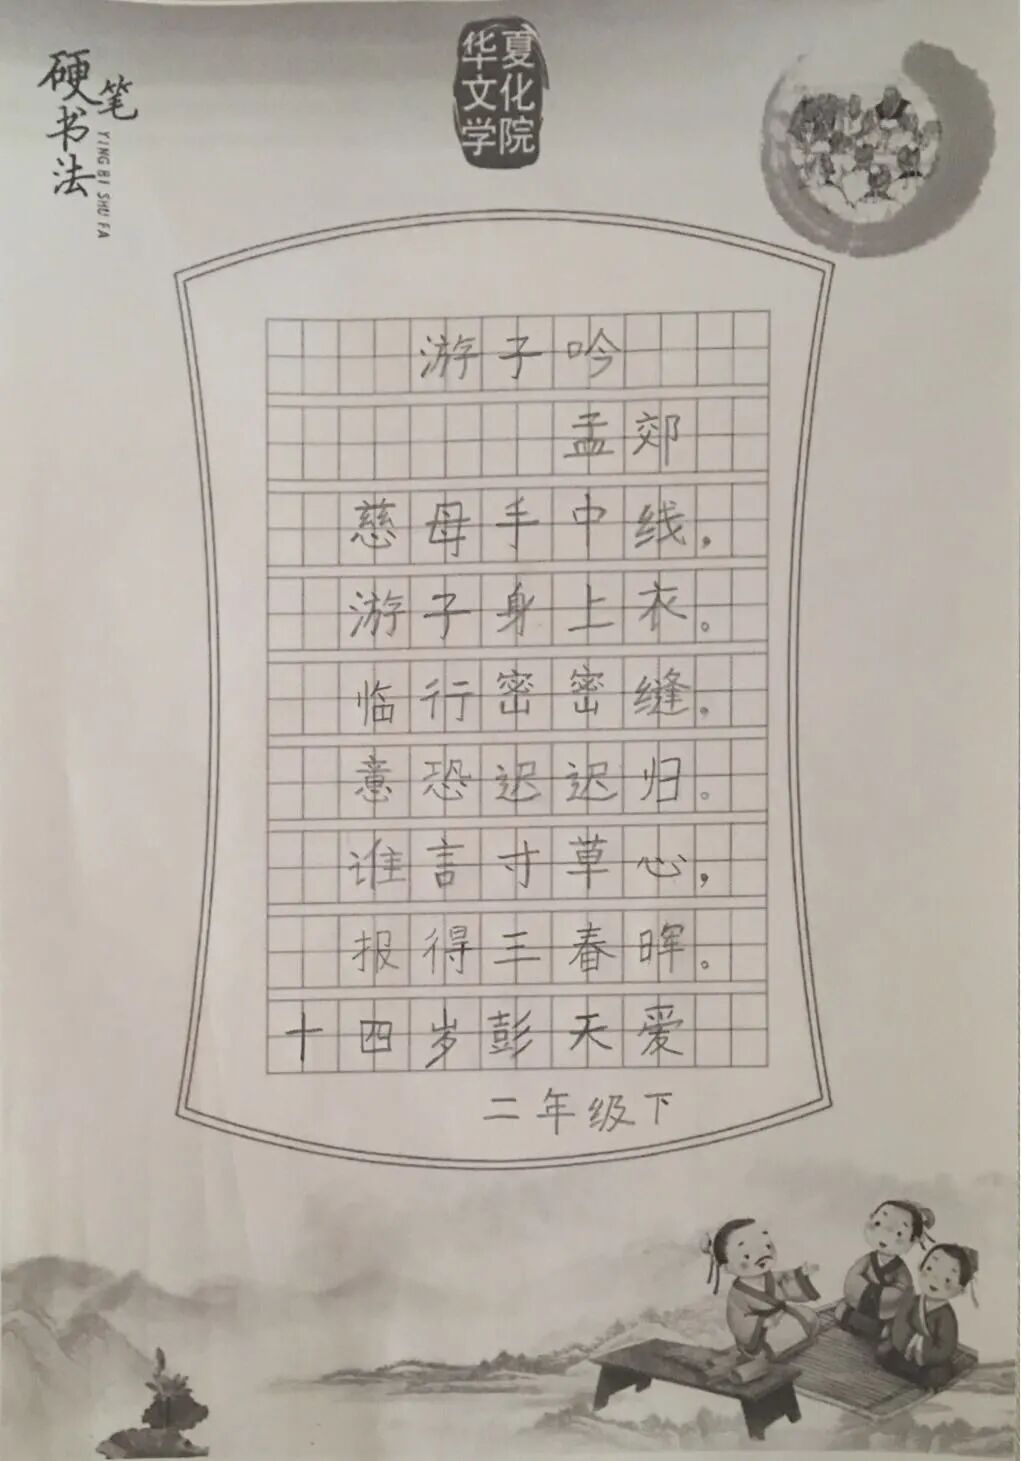 硬笔书法
YING BI SHU FA
华夏
文化
学院
游子吟
孟郊
慈母手中线，
游子身上衣。
临行密密缝。
意恐迟迟归。
谁言寸草心，
报得三春晖。
十四岁彭天爱
二年级下